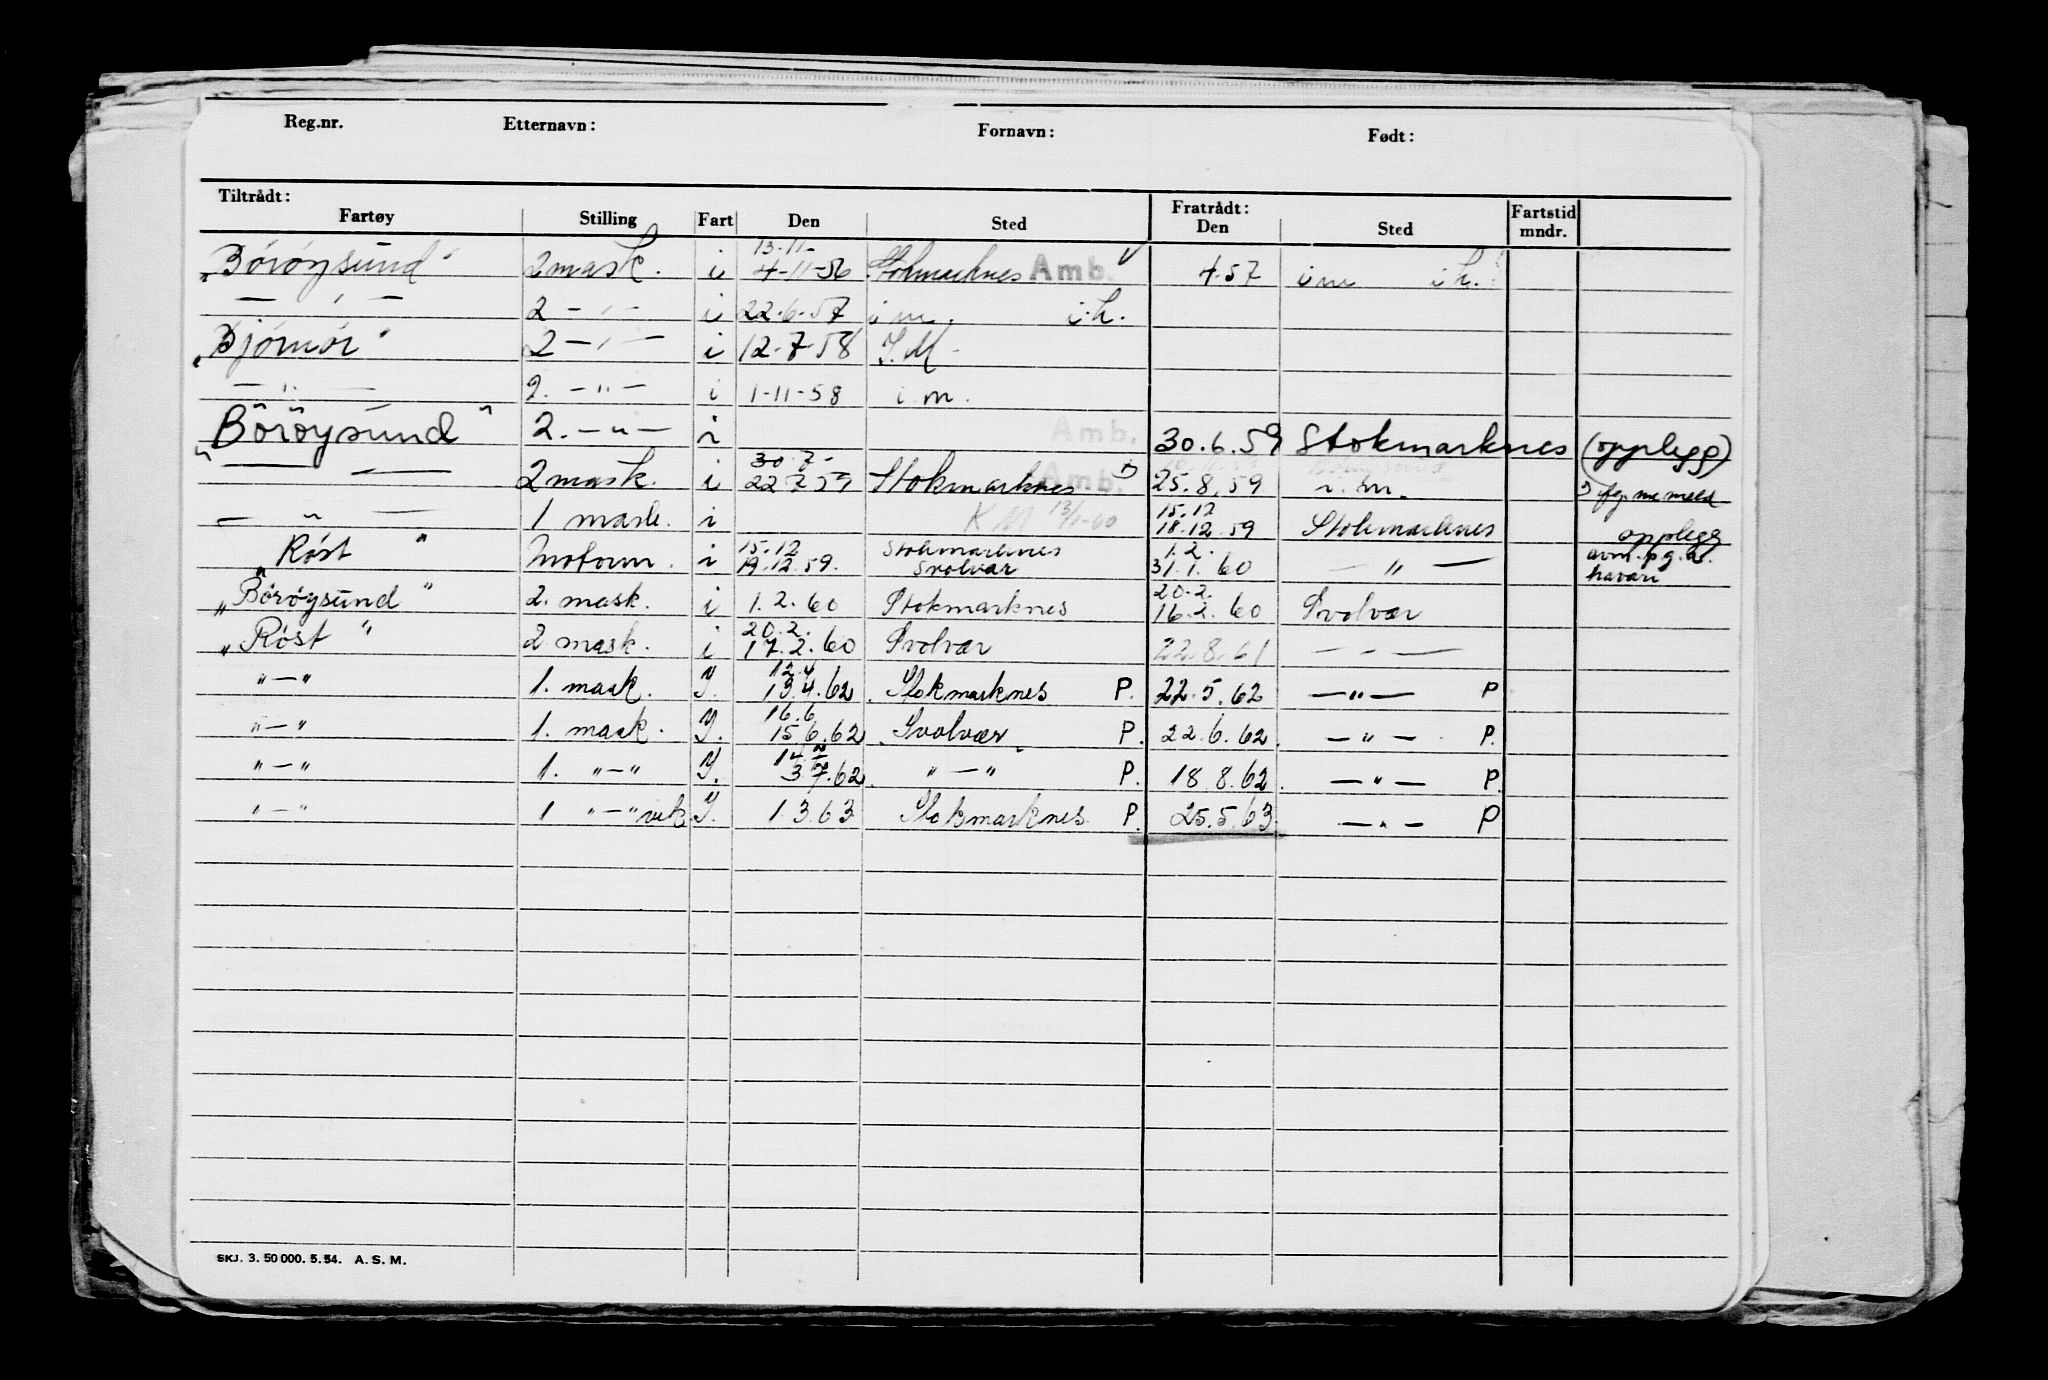 Reg.nr. Etternavn: Fornavn: Født:
Tiltrådt: Fratrådt: Fartstid
Fartøy Stilling Fart Den Sted Den Sted mndr.
13-11-
„Börøysund" 2 mask. i 4-11-56 Stokmarknes Amb. 4.57 i m i.h.
— „ — 2 — „ — i 22.6.57 i m. i.h.
„Bjørnør" 2 — „ — i 12-7-58 I.M
— „ — 2. — „ — i 1-11-58 i.m.
„Börøysund" 2. — „ — i Amb. 30.6.59 Stokmarknes (opplegg)
30.7-
— — 2 mask. i 22.7.59 Stokmarknes Amb. 25.8.59 i.m. meld
15.12
— „ — 1 mask. i KM 13/1-60 18.12.59 Stokmarknes opplegg
15.12 Stokmarknes 1.2. avm. p.g.a.
„Røst" Motorm. i 19.12.59. Svolvær 31.1.60 — „ — havari
20.2.
„Börøysund" 2. mask. i 1.2.60 Stokmarknes 16.2.60 Svolvær
20.2.
„Røst" 2 mask. i 17.2.60 Svolvær 22.8.61 — „ —
12.4
„ — „ 1. mask. I. 13.4.62 Stokmarknes P. 22.5.62 — „ — P
16.6
„ — „ 1. mask. I. 15.6.62 Svolvær P. 22.6.62. — „ — P.
„ — „ 1. „ — „ I. 3.7.62 „ — „ P. 18.8.62. — „ — P.
„ — „ 1 „ — „ vik. I. 1.3.63 Stokmarknes. P. 25.5.63. — „ — P
SKJ. 3. 50 000. 5. 54. A. S. M.